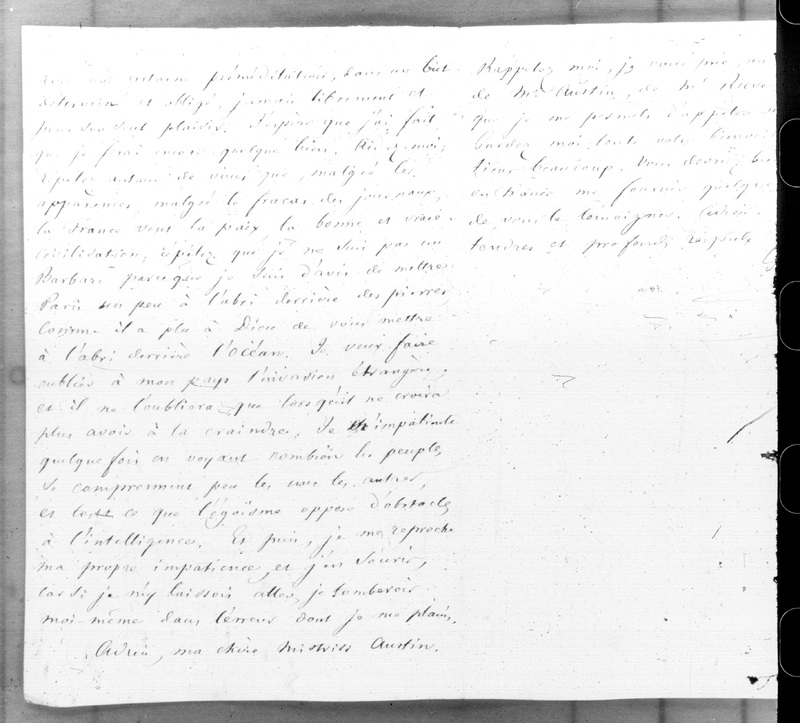 une certaine préméditation, dans un but
déterminé et obligé, jamais librement et
pour son seul plaisir. J'espère que j'ai fait
que je ferai encore quelque bien. Aidez-moi,
répétez autour de vous que, malgré les
apparences, malgré le fracas des journaux,
la France veut la paix, la bonne et vraie
civilisation, répétez que je ne suis pas un
Barbare parceque je suis d'avis de mettre
Paris un peu à l'abri derrière des pierres
comme il a plu à Dieu de vous mettre
à l'abri derrière l'océan. Je veux faire
oublier à mon pays l'invasion étrangère,
et il ne l'oubliera que lorsqu'il ne croira
plus avoir à la craindre. Je m'impatiente
quelquefois en voyant combien les peuples
se comprennent peu les uns les autres,
et tout ce que l'égoïsme oppose d'obstacles
à l'intelligence. Et puis, je me reproche
ma propre impatience, et j'en souris,
car si je m'y laissois aller, je tomberois
moi-même dans l'erreur dont je me plains.
Adieu, ma chère Mistriss Austin.
Rappelez moi, je vous prie, au
de Mr Austin, de Mr Reeve
que je me permets d'appeler
Gardez-moi toute votre
tiens beaucoup. Vous devriez bien
en France me fournir quelque
de vous le témoigner. Adieu.
tendres et profonds respects